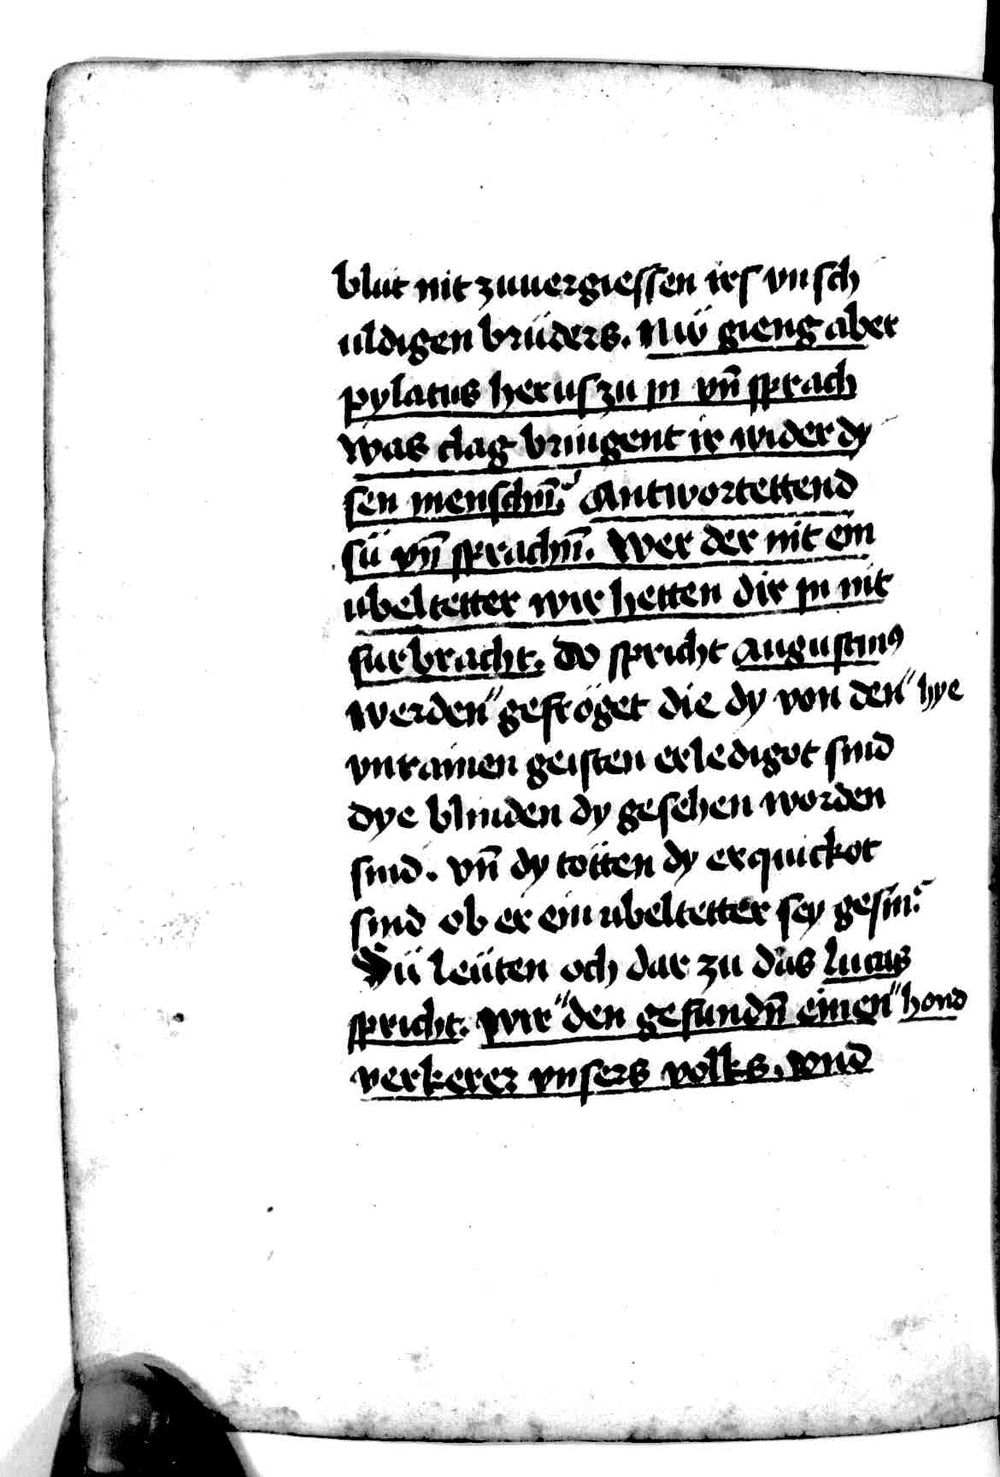 blůt nit zuuergiessen irs vnsch
uldigen brůders. Nw̋ gieng aber
pylatus herus zu in vn̄ sprach
was clag bringent ir wider dy
sen menschn̄? Antwortettend
sü vn̄ sprachn̄. Wer der nit ein
ubeltetter wir hetten dir in nit
furbracht. Do spricht Augustin9
werden" gefröget die dy von den" hye
vnrainen geisten erledigot sind
dye blinden dy gesehen worden
sind. vn̄ dy totten dy erquickot
sind ob er ein ubeltetter sey gesin?
Sü leüten och dar zu das lucas
spricht. wir" den gefundn̄ einen" hond
verkerer vnsers volks. vnd